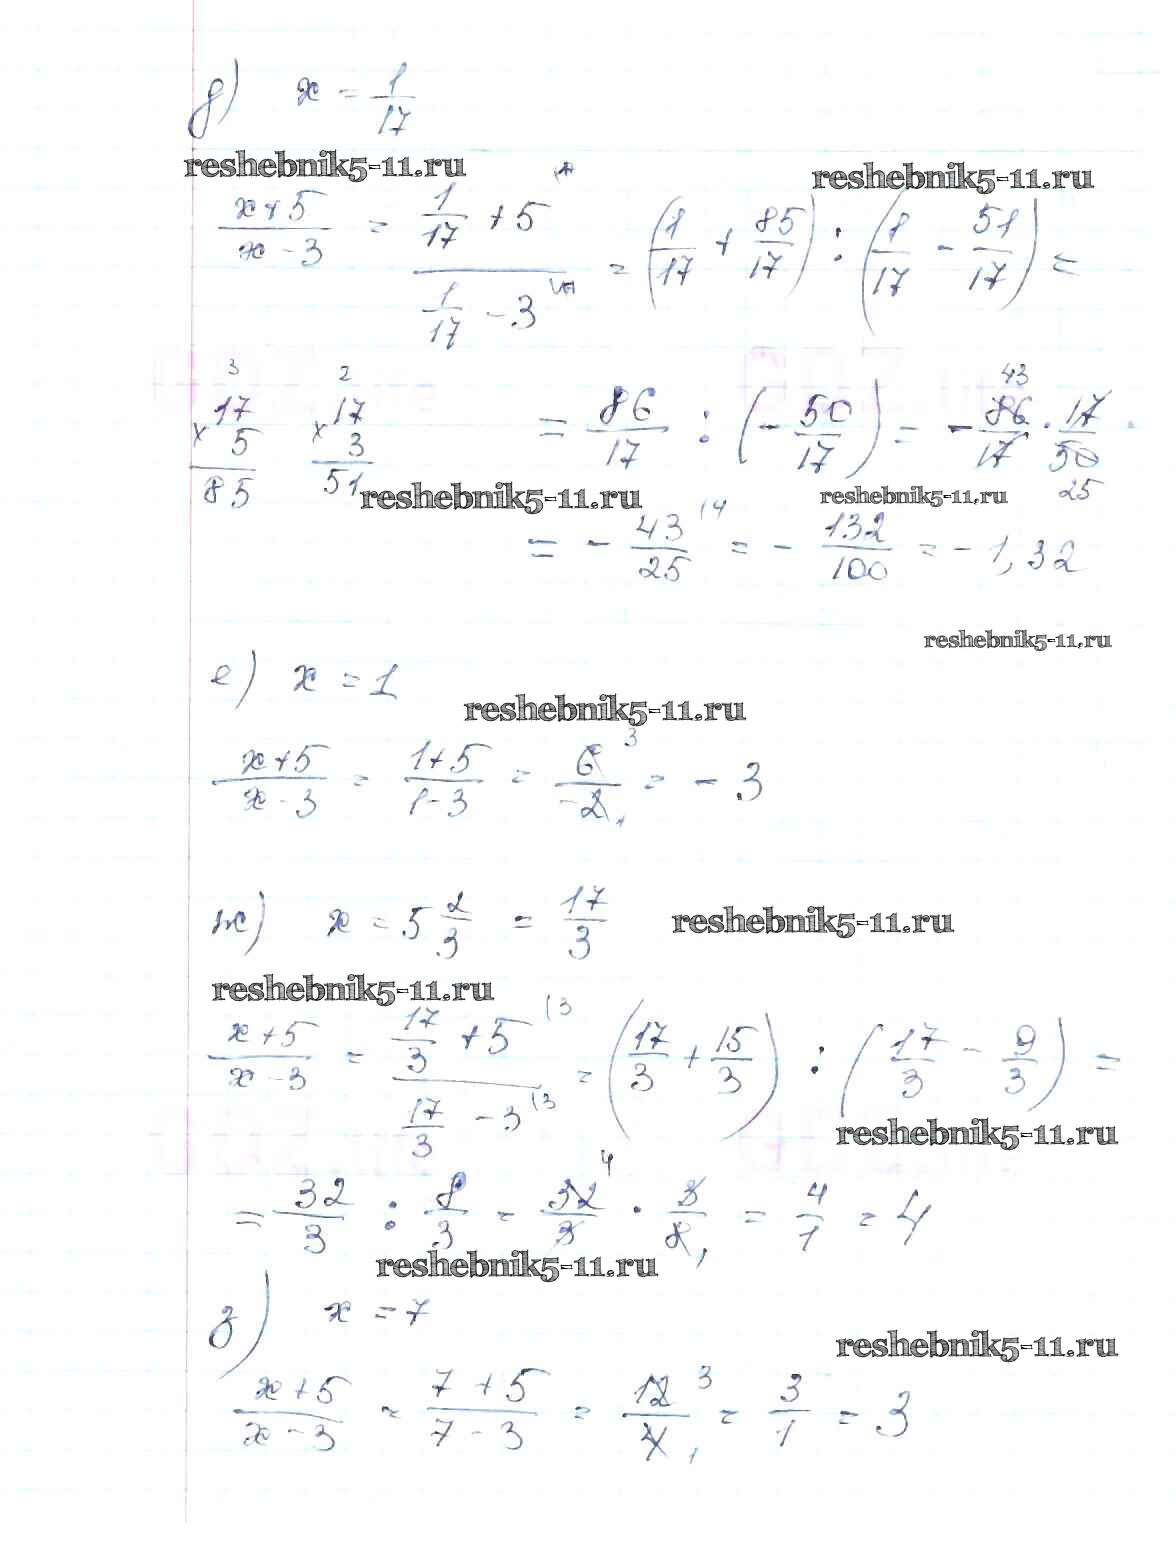 д) x = 1/17
reshebnik5-11.ru
reshebnik5-11.ru
(x+5)/(x-3) = (1/17 + 5)/(1/17 - 3) = (1/17 + 85/17) : (1/17 - 51/17) =
3 2
17 × 5 = 85 17 × 3 = 51
= 86/17 : (- 50/17) = - 86/17 · 17/50 =
43
25
reshebnik5-11.ru
reshebnik5-11.ru
= - 43/25 (4 = - 132/100 = - 1,32
reshebnik5-11.ru
е) x = 1
reshebnik5-11.ru
(x+5)/(x-3) = (1+5)/(1-3) = 6 3/-2 1 = - 3
ж) x = 5 2/3 = 17/3
reshebnik5-11.ru
reshebnik5-11.ru
(x+5)/(x-3) = (17/3 + 5 (3)/(17/3 - 3 (3) = (17/3 + 15/3) : (17/3 - 9/3) =
reshebnik5-11.ru
= 32/3 : 8/3 = 32 4/3 · 3/8 1 = 4/1 = 4
reshebnik5-11.ru
з) x = 7
reshebnik5-11.ru
(x+5)/(x-3) = (7+5)/(7-3) = 12 3/4 1 = 3/1 = 3